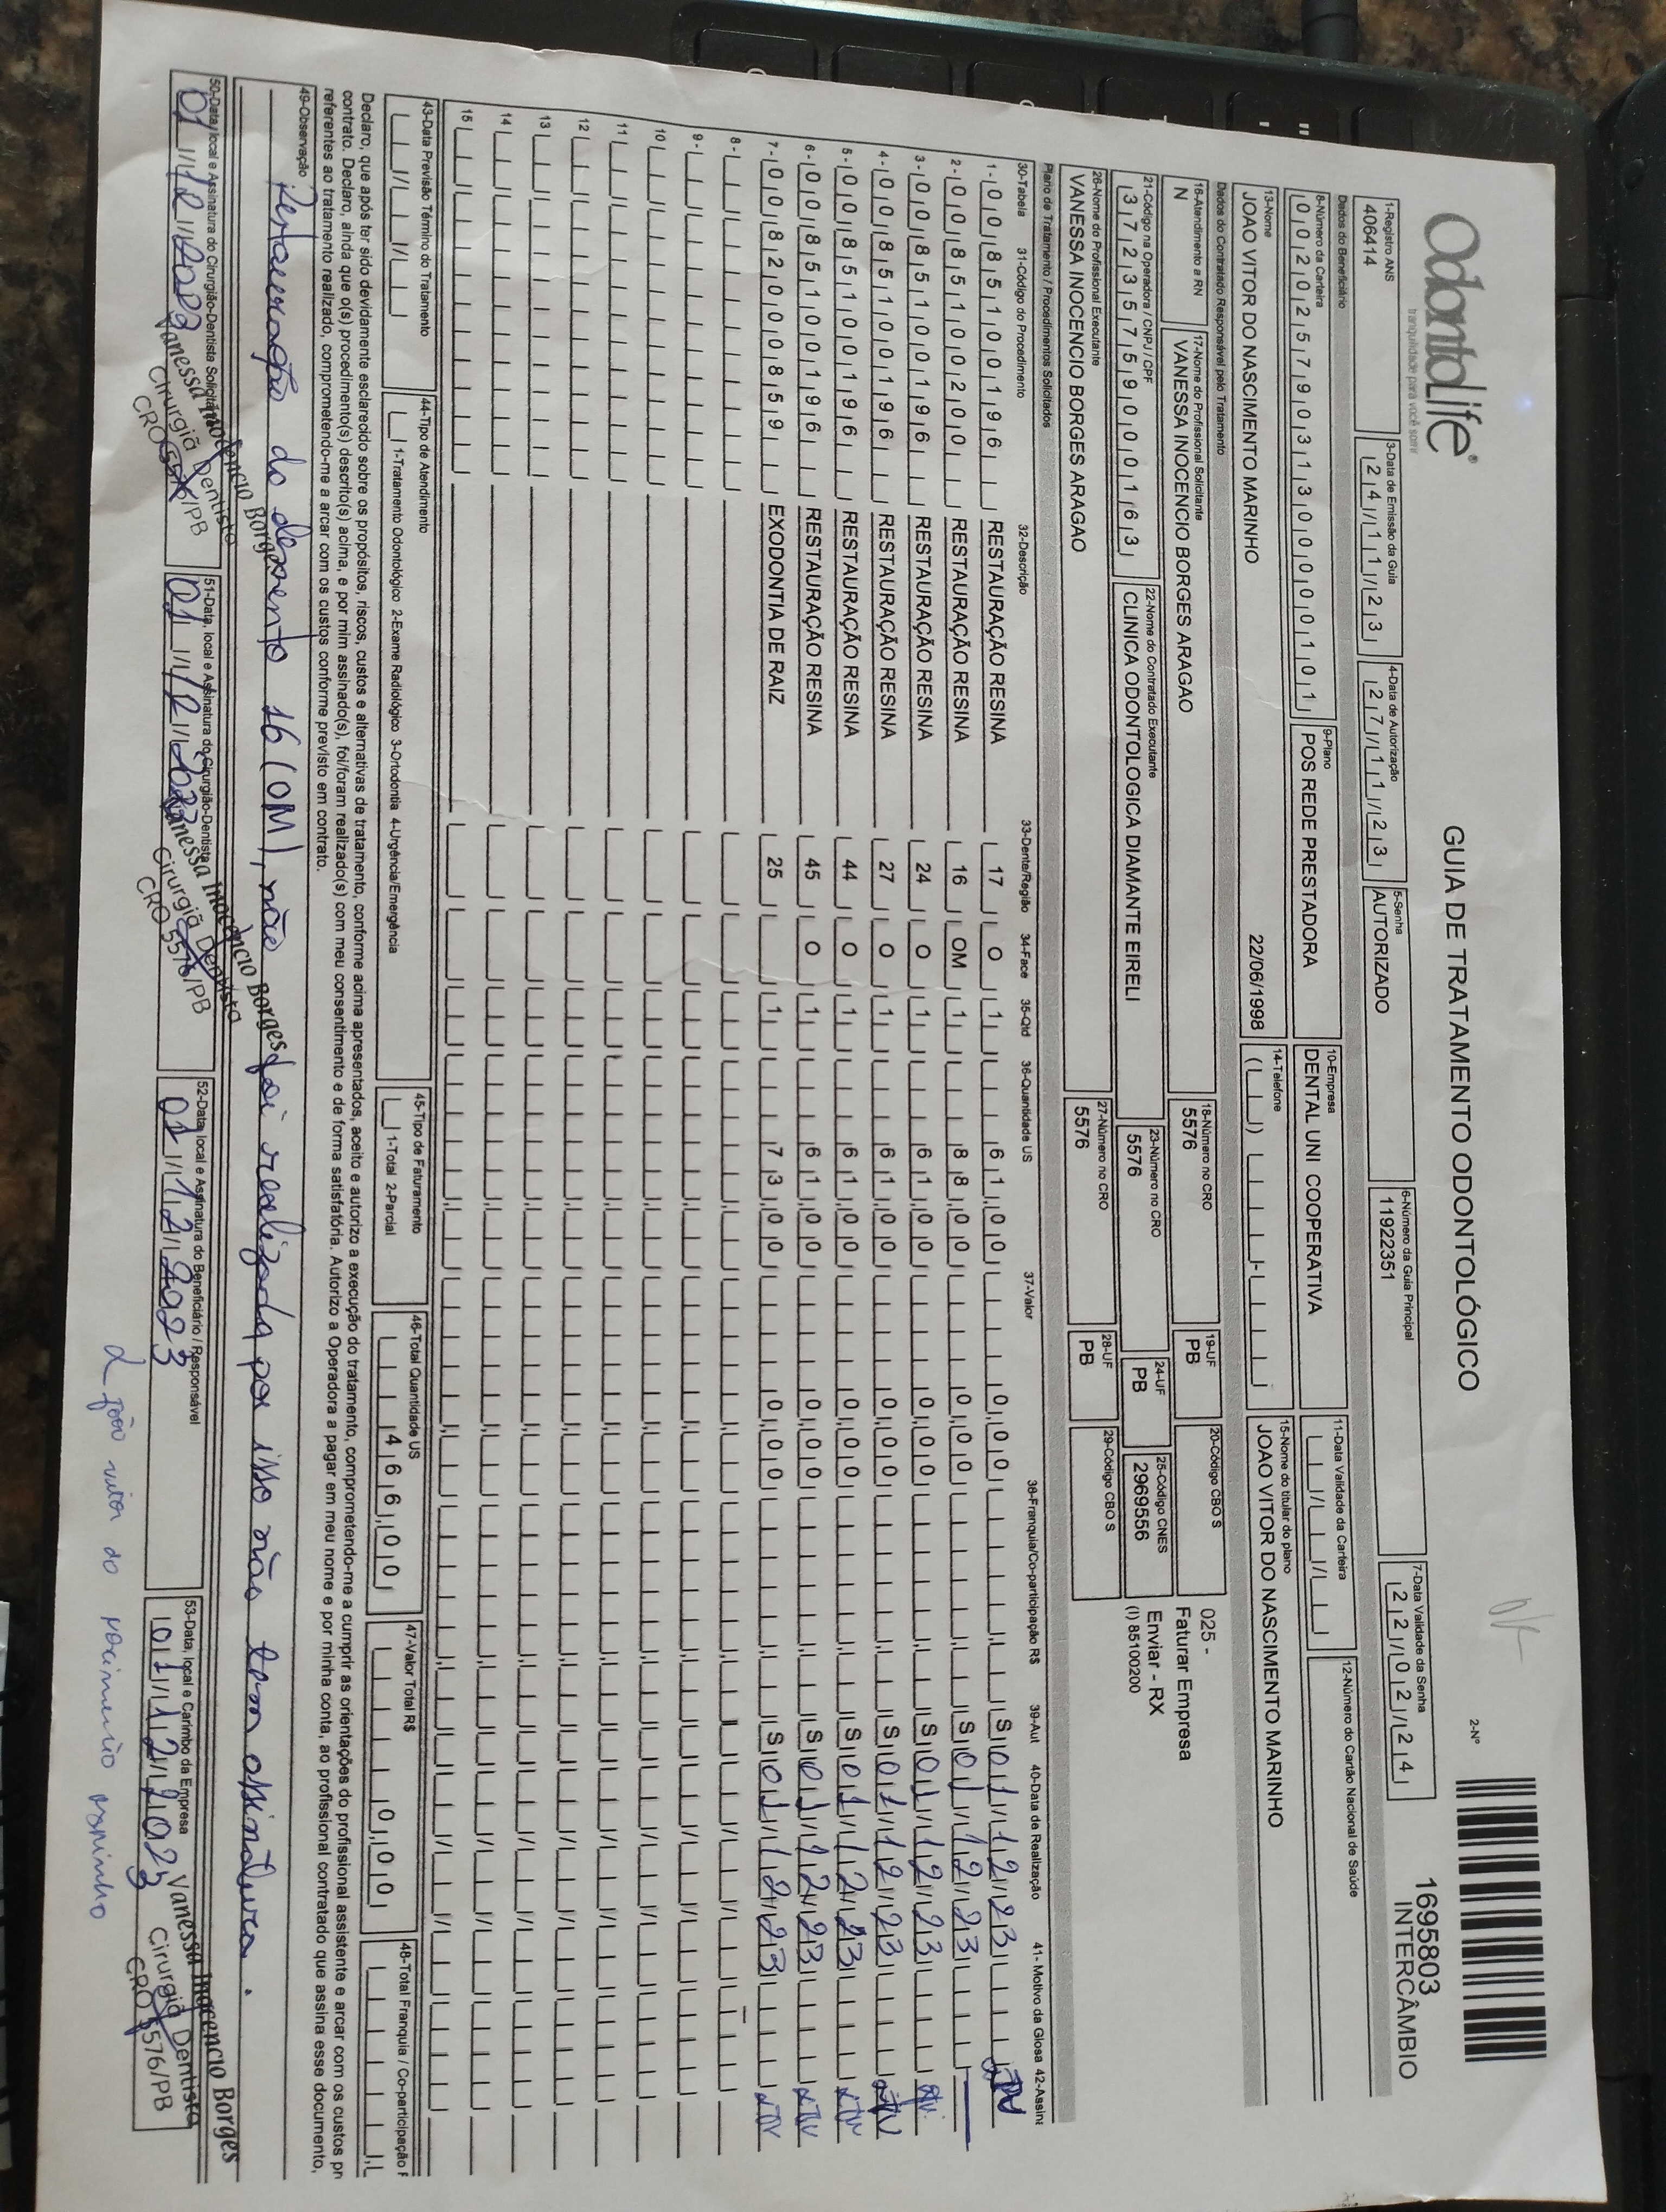 OdontoLife®
tranquilidade para você sorrir
GUIA DE TRATAMENTO ODONTOLÓGICO
2-Nº
1695803
INTERCÂMBIO
1-Registro ANS
406414
3-Data de Emissão da Guia
24/11/23
4-Data de Autorização
27/11/23
5-Senha
AUTORIZADO
6-Número da Guia Principal
11922351
7-Data Validade da Senha
22/02/24
Dados do Beneficiário
8-Número da Carteira
00202579031300000101
9-Plano
POS REDE PRESTADORA
10-Empresa
DENTAL UNI COOPERATIVA
11-Data Validade da Carteira
12-Número do Cartão Nacional de Saúde
13-Nome
JOAO VITOR DO NASCIMENTO MARINHO
22/06/1998
14-Telefone
15-Nome do titular do plano
JOAO VITOR DO NASCIMENTO MARINHO
Dados do Contratado Responsável pelo Tratamento
16-Atendimento a RN
N
17-Nome do Profissional Solicitante
VANESSA INOCENCIO BORGES ARAGAO
18-Número no CRO
5576
19-UF
PB
20-Código CBO S
025 -
Faturar Empresa
Enviar - RX
(I) 85100200
21-Código na Operadora / CNPJ / CPF
37235759000163
22-Nome do Contratado Executante
CLINICA ODONTOLOGICA DIAMANTE EIRELI
23-Número no CRO
5576
24-UF
PB
25-Código CNES
2969556
26-Nome do Profissional Executante
VANESSA INOCENCIO BORGES ARAGAO
27-Número no CRO
5576
28-UF
PB
29-Código CBO S
Plano de Tratamento / Procedimentos Solicitados
30-Tabela 31-Código do Procedimento 32-Descrição 33-Dente/Região 34-Face 35-Qtd 36-Quantidade US 37-Valor 38-Franquia/Co-participação R$ 39-Aut 40-Data de Realização 41- Motivo da Glosa 42-Assina
1- 00 85100196 RESTAURAÇÃO RESINA 17 O 1 61,00 0,00 S 01/12/23
2- 00 85100200 RESTAURAÇÃO RESINA 16 OM 1 88,00 0,00 S 01/12/23
3- 00 85100196 RESTAURAÇÃO RESINA 24 O 1 61,00 0,00 S 01/12/23
4- 00 85100196 RESTAURAÇÃO RESINA 27 O 1 61,00 0,00 S 01/12/23
5- 00 85100196 RESTAURAÇÃO RESINA 44 O 1 61,00 0,00 S 01/12/23
6- 00 85100196 RESTAURAÇÃO RESINA 45 O 1 61,00 0,00 S 01/12/23
7- 00 82000859 EXODONTIA DE RAIZ 25 1 73,00 0,00 S 01/12/23
8-
9-
10
11
12
13
14
15
43-Data Previsão Término do Tratamento
44-Tipo de Atendimento
1-Tratamento Odontológico 2-Exame Radiológico 3-Ortodontia 4-Urgência/Emergência
45-Tipo de Faturamento
1-Total 2-Parcial
46-Total Quantidade US
466,00
47-Valor Total R$
0,00
48-Total Franquia / Co-participação
Declaro, que após ter sido devidamente esclarecido sobre os propósitos, riscos, custos e alternativas de tratamento, conforme acima apresentados, aceito e autorizo a execução do tratamento, comprometendo-me a cumprir as orientações do profissional assistente e arcar com os custos pr
contrato. Declaro, ainda que o(s) procedimento(s) descrito(s) acima, e por mim assinado(s), foi/foram realizado(s) com meu consentimento e de forma satisfatória. Autorizo a Operadora a pagar em meu nome e por minha conta, ao profissional contratado que assina esse documento,
referentes ao tratamento realizado, comprometendo-me a arcar com os custos conforme previsto em contrato.
49-Observação
Restauração do elemento 16 (OM), não foi realizada por isso não tem assinatura.
50-Data, local e Assinatura do Cirurgião-Dentista Solicitante
01/12/2023
Vanessa Inocencio Borges
Cirurgiã Dentista
CRO 5576/PB
51-Data, local e Assinatura do Cirurgião-Dentista
01/12/2023
Vanessa Inocencio Borges
Cirurgiã Dentista
CRO 5576/PB
52-Data, local e Assinatura do Beneficiário / Responsável
01/12/2023
53-Data, local e Carimbo da Empresa
01/12/2023
Vanessa Inocencio Borges
Cirurgiã Dentista
CRO 5576/PB
João vitor do nascimento marinho